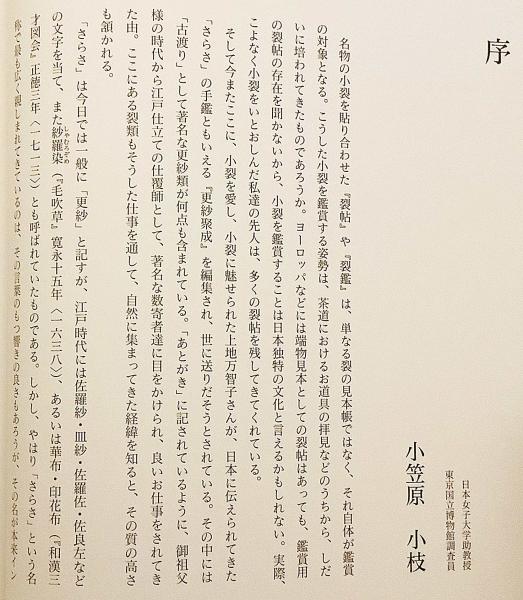 序
日本女子大学助教授
東京国立博物館調査員
小笠原　小枝
名物の小裂を貼り合わせた『裂帖』や『裂鑑』は、単なる裂の見本帳ではなく、それ自体が鑑賞
の対象となる。こうした小裂を鑑賞する姿勢は、茶道におけるお道具の拝見などのうちから、しだ
いに培われてきたものであろうか。ヨーロッパなどには端物見本としての裂帖はあっても、鑑賞用
の裂帖の存在を聞かないから、小裂を鑑賞することは日本独特の文化と言えるかもしれない。実際、
こよなく小裂をいとおしんだ私達の先人は、多くの裂帖を残してきてくれている。
そして今またここに、小裂を愛し、小裂に魅せられた上地万智子さんが、日本に伝えられてきた
「さらさ」の手鑑ともいえる『更紗聚成』を編集され、世に送りだそうとされている。その中には
「古渡り」として著名な更紗類が何点も含まれている。「あとがき」に記されているように、御祖父
様の時代から江戸仕立ての仕覆師として、著名な数寄者達に目をかけられ、良いお仕事をされてき
た由。ここにある裂類もそうした仕事を通して、自然に集まってきた経緯を知ると、その質の高さ
も頷かれる。
「さらさ」は今日では一般に「更紗」と記すが、江戸時代には佐羅紗・皿紗・佐羅佐・佐良左など
の文字を当て、また紗羅染（『毛吹草』寛永十五年〈一六三八〉）、あるいは華布・印花布（『和漢三
才図会』正徳三年〈一七一三〉）とも呼ばれていたものである。しかし、やはり「さらさ」という名
称で最も広く親しまれてきているのは、その言葉のもつ響きの良さもあろうが、その名が本来イン